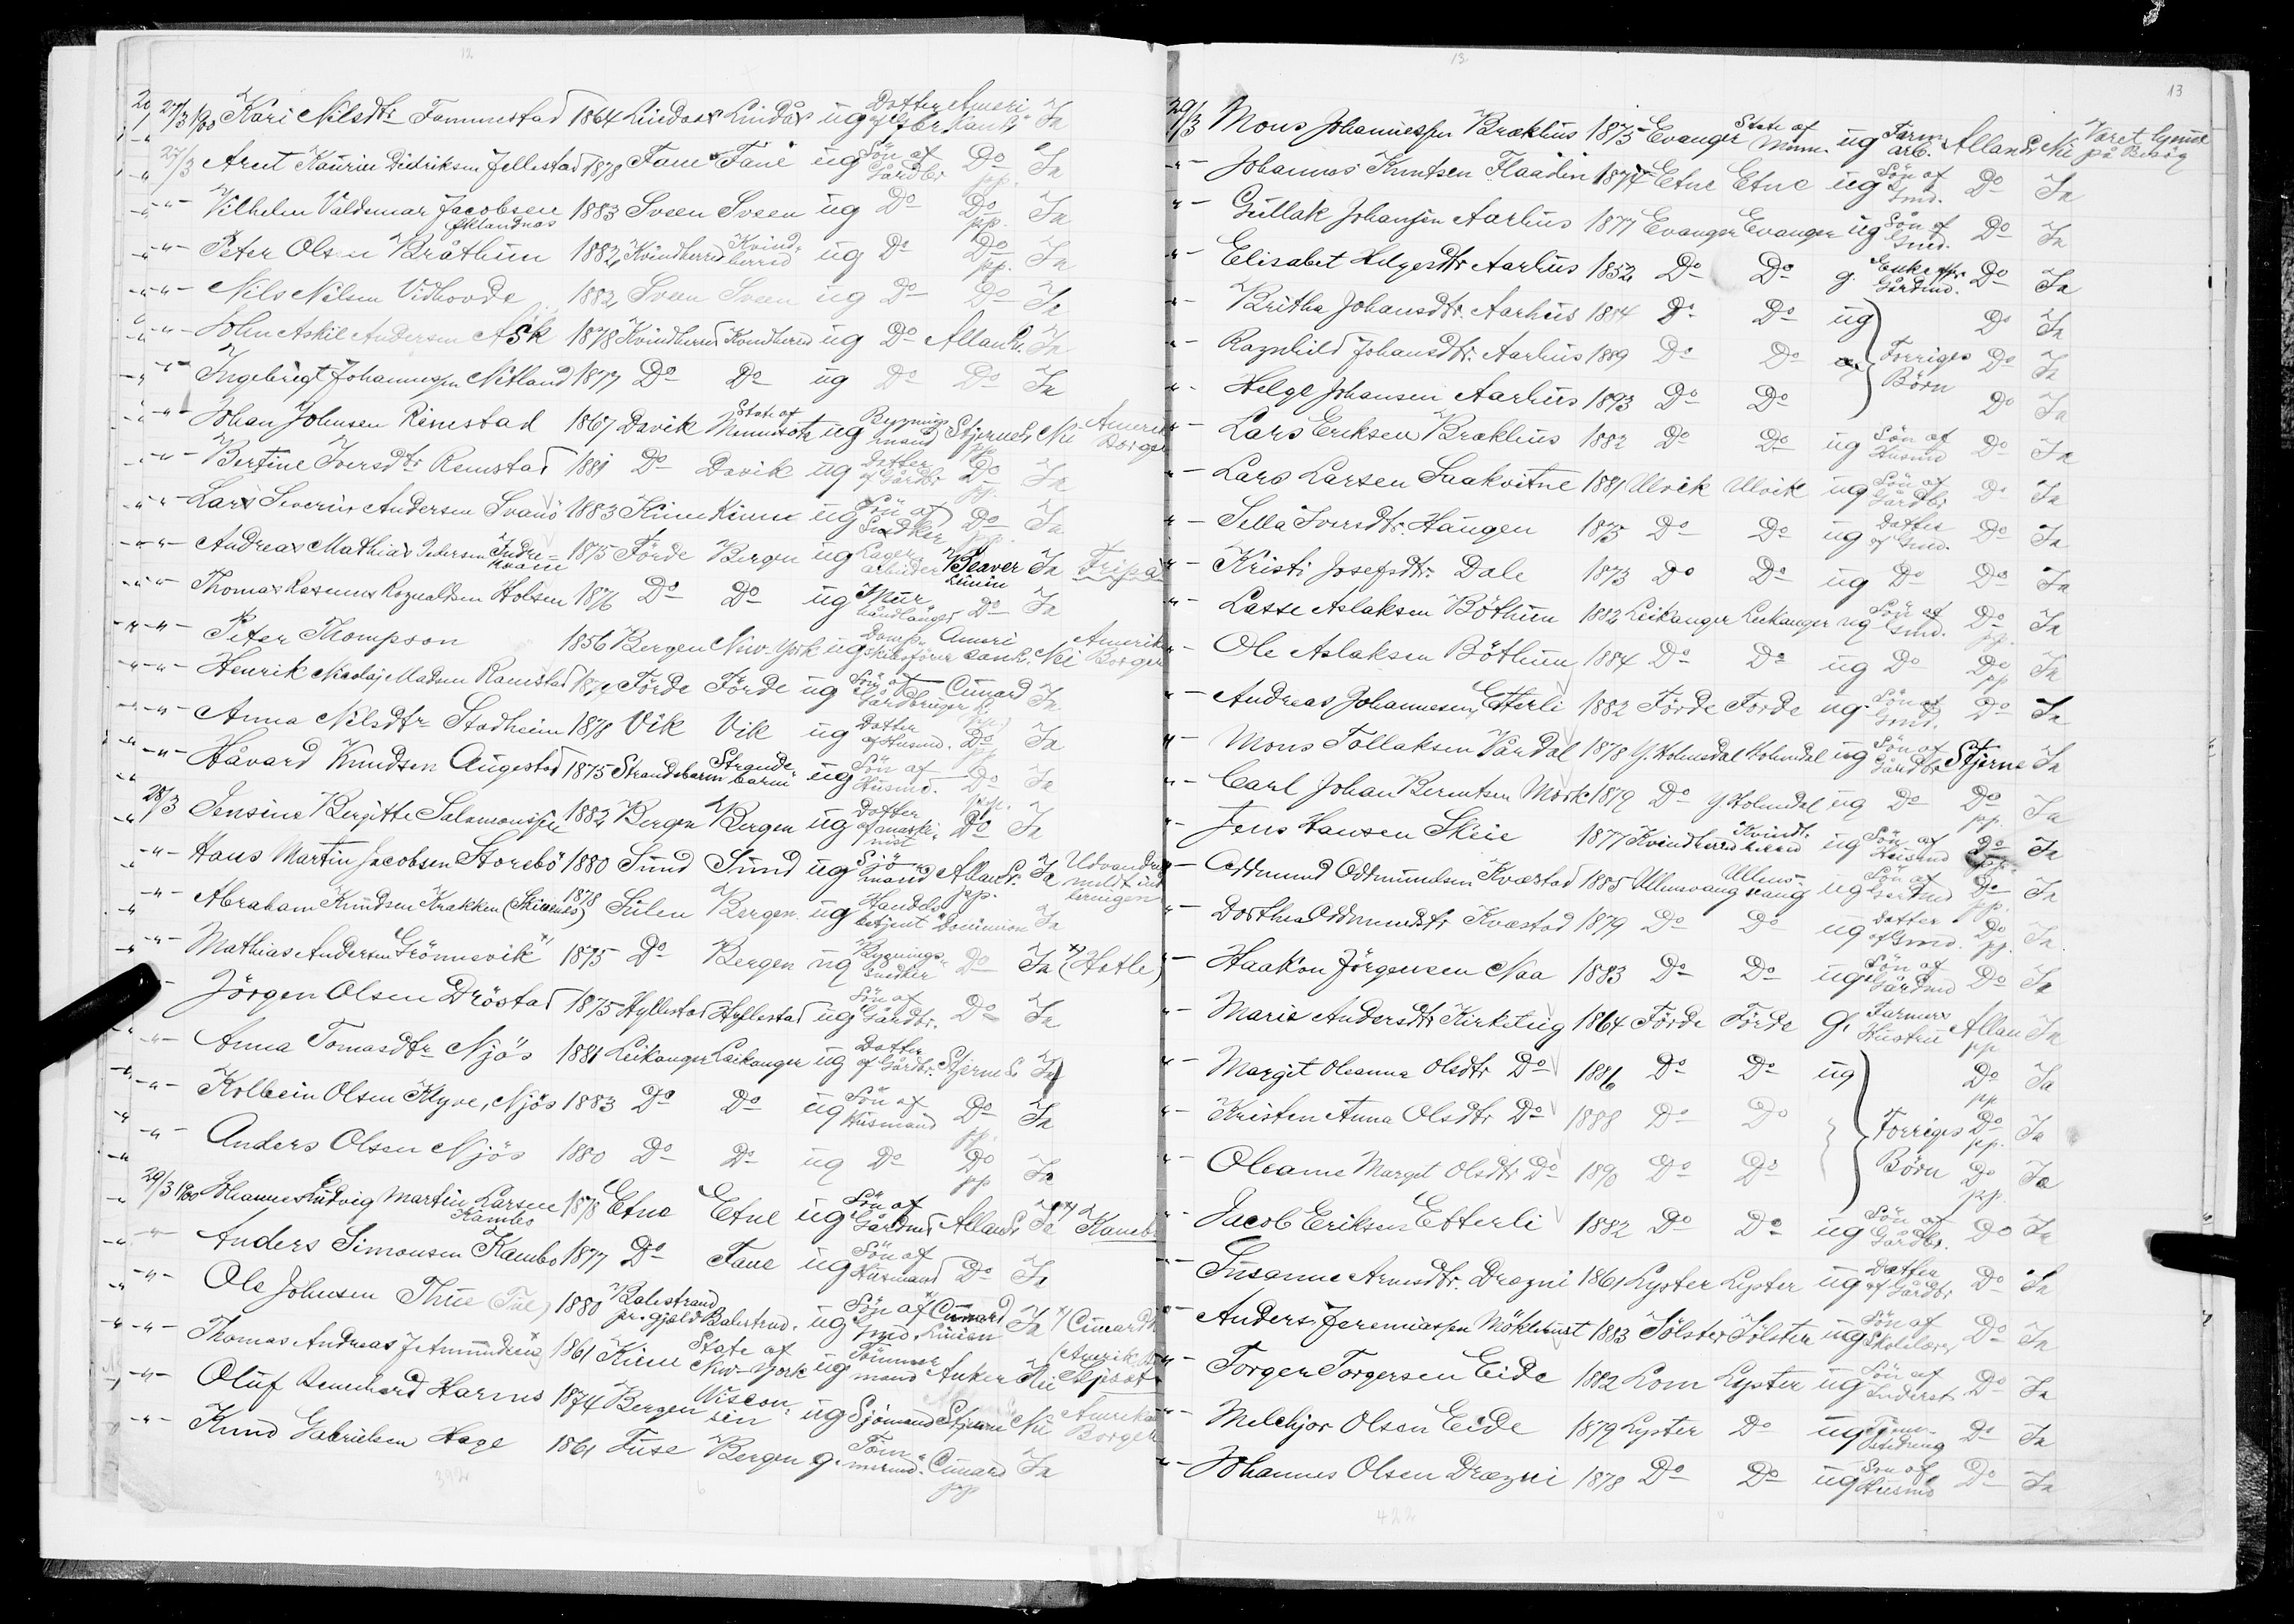 12
27/3 1900 Kari Nilsdtr Fammestad 1864 Lindås Lindås ug Datter af Gbr Amerikanl. Ja
27/3 Arnt Kaurin Didriksen Jellestad 1878 Fane Fane ug Sön af Gårdbr Do pp. Ja
-"- Vilhelm Valdemar Jacobsen Öklandnæs 1883 Sveen Sveen ug Do Do pp. Ja
-"- Peter Olsen Bråthun 1882 Kvindherred Kvindherred ug Do Do pp. Ja
-"- Nils Nilsen Vidhovde 1882 Sveen Sveen ug Do Do Ja
-"- John Askil Andersen Ask 1878 Kvindherred Kvindherred ug Do Allanl. Ja
-"- Ingebrigt Johannessen Nitland 1877 Do Do ug Do Do Ja
-"- Johan Johnsen Rimstad 1867 Davik State of Minnesota ug Bygningsmand Stjernel. pp Nei Amerik. Borger
-"- Bertine Iversdtr Remstad 1881 Do Davik ug Datter af Gårdbr Do pp Ja
-"- Lars Severin Andersen Svanö 1883 Kinn Kinn ug Sön af Do pp. Ja
-"- Andreas Mathias Petersen Indrekvam 1875 Förde Bergen ug Lagerarbeider Beaver Linien Ja Fripas
-"- Thomas Rasmus Rognaldsen Holsen 1876 Do Do ug Murhåndlanger Do Ja
-"- Peter Thompson 1856 Bergen New-York ug Dampskibsförer Amerikanl. Nei Amerik. Borger
-"- Henrik Nicolaj Madsen Ramstad Förde Förde ug Sön af Gårdbruger Cunard L. pp. Ja
-"- Anna Nilsdtr Stadheim 1878 Vik Vik ug Datter af Husmd. Do pp Ja
-"- Håvard Knudsen Augestad 1875 Strandebarm Strandebarm ug Sön af Husmd. Do pp. Ja
28/3 Jensine Bergitte Salomonsen 1882 Bergen Bergen ug Datter af maskinist Do Ja
-"- Hans Martin Jacobsen Storebö 1880 Sund Sund ug Sjömand Allanl. pp. Ja
-"- Abraham Knudsen Krakken (Skivenes) 1878 Sulen Bergen ug Handelsbetjent Dominion Ja
-"- Mathias Andersen Grönnevik x) 1875 Do Bergen ug Bygningssnedker Do Ja x) (Hatle)
-"- Jörgen Olsen Dröstad 1875 Hyllestad Hyllestad ug Sön af Gårdbr. Do Ja
-"- Anna Tomasdtr Njös 1881 Leikanger Leikanger ug Datter af Gårdbr. Stjernel. Ja
-"- Kolbein Olsen Klyve, Njös 1883 Do Do ug Sön af Husmand Do pp. Ja
-"- Anders Olsen Njös 1880 Do Do ug Do Do pp Ja
29/3 1900 Johannes Ludvig Martin Larsen Kambo 1878 Etne Etne ug Sön af Gårdmd Allanl. Ja x) Kambo
-"- Anders Simonsen Kambo 1877 Do Fane ug Sön af Husmand Do Ja
-"- Ole Johnsen Thue (Tue) 1880 Balestrand pr. gjæld Balestrand. ug Sön af Gmd. x) Cunard Linien Ja x) Cunard
-"- Thomas Andreas J. Amundsen 1861 Kinn State of New-York ug Tömmermand Anker Nei
-"- Oluf Bernhard Harms 1874 Bergen Wisconsin ug Sjömand Stjerne Nei Amerikansk Borger
-"- Knud Gabrielsen Hage 1861 Fuse Bergen g. Tömmermd. Cunard pp Ja
392
13
13
29/3 Mons Johannessen Brækhus 1875 Evanger State of Minn. ug Farmarb. Allanl. Nei Været hjemme på Besög
-"- Johannes Knutsen Flaadin 1874 Etne Etne ug Sön af Gmd. Do Ja
-"- Gullak Johansen Aarhus 1877 Evanger Evanger ug Sön af Gmd. Do Ja
-"- Elisabet Helgesdtr Aarhus 1852 Do Do g. Enke efter Gårdmd. Do Ja
-"- Britha Johansdtr. Aarhus 1884 Do Do ug Do Ja
-"- Ragnhild Johansdtr. Aarhus 1889 Do Do Forriges Börn Do Ja
-"- Helge Johansen Aarhus 1893 Do Do Do Ja
-"- Lars Eriksen Brækhus 1882 Do Do ug Sön af Husmd Do Ja
-"- Lars Larsen Saakvitne 1881 Ulvik Ulvik ug Sön af Gårdbr Do Ja
-"- Sella Iversdtr. Haugen 1875 Do Do ug Datter af Gmd. Do Ja
-"- Kristi Josefsdtr. Dale 1873 Do Do ug Do Do Ja
-"- Lasse Aslaksen Böthun 1882 Leikanger Leikanger ug Sön af Gmd. Do pp. Ja
-"- Ole Aslaksen Böthun 1884 Do Do ug Do Do pp Ja
-"- Andreas Johannesen Etterli 1882 Förde Förde ug. Sön af Gmd. Do Ja
-"- Mons Tollaksen Vårdal 1878 Y. Holmedal Holmedal ug Sön af Gårdbr Stjerne Ja
-"- Carl Johan Berntsen Mörk 1879 Do Y Holmedal ug Do Do pp. Ja
-"- Jens Hansen Skeie 1877 Kvindherred Kvindherred ug Sön af Husmd Do pp. Ja
-"- Oddmund Oddmundsen Kvæstad 1885 Ullensvang Ullensvang ug Sön af Gårdmd Do pp. Ja
-"- Dorthea Oddmundsdtr Kvæstad 1879 Do Do ug Datter af Gmd. Do pp. Ja
-"- Haakon Jörgensen Naa 1883 Do Do ug Sön af Gårdmd Do Ja
-"- Marie Andersdtr Kirketeig 1864 Förde Förde G. Farmers Hustru Allan pp Ja
-"- Margit Oleanna Olsdtr Do 1886 Do Do ug Do pp Ja
-"- Kristen Anna Olsdtr Do 1888 Do Do Forriges Börn Do pp. Ja
-"- Oleanne Marget Olsdtr Do 1890 Do Do Do pp. Ja
-"- Jacob Eriksen Etterli 1882 Do Do ug Sön af Gårdbr. Do Ja
-"- Susanne Arnesdtr. Drægni 1861 Lyster Lyster ug Datter af Gårdbr Do Ja
-"- Anders Jeremiassen Möklebust 1883 Jölster Jölster ug Sön af Skolelærer Do Ja
-"- Torger Torgersen Eide 1882 Lom Lyster ug Sön af Do Ja
-"- Melchior Olsen Eide 1879 Lyster Do ug Do Ja
-"- Johannes Olsen Drægni 1878 Do Do ug Sön af Husmd Do Ja
422